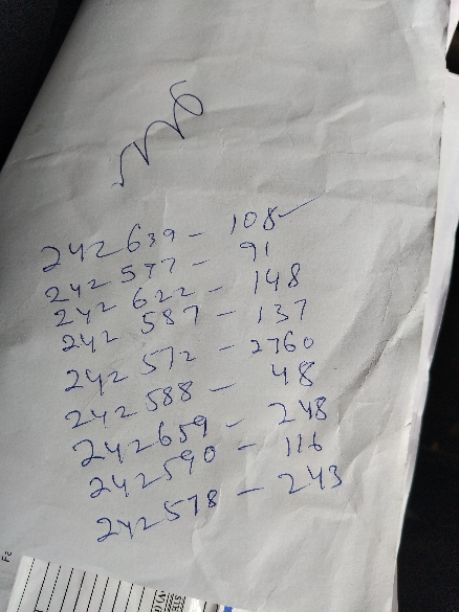 242639 - 108 ✓
242577 - 91
242622 - 148
242 587 - 137
242 572 - 2760
242 588 - 48
242659 - 248
242590 - 116
242578 - 243